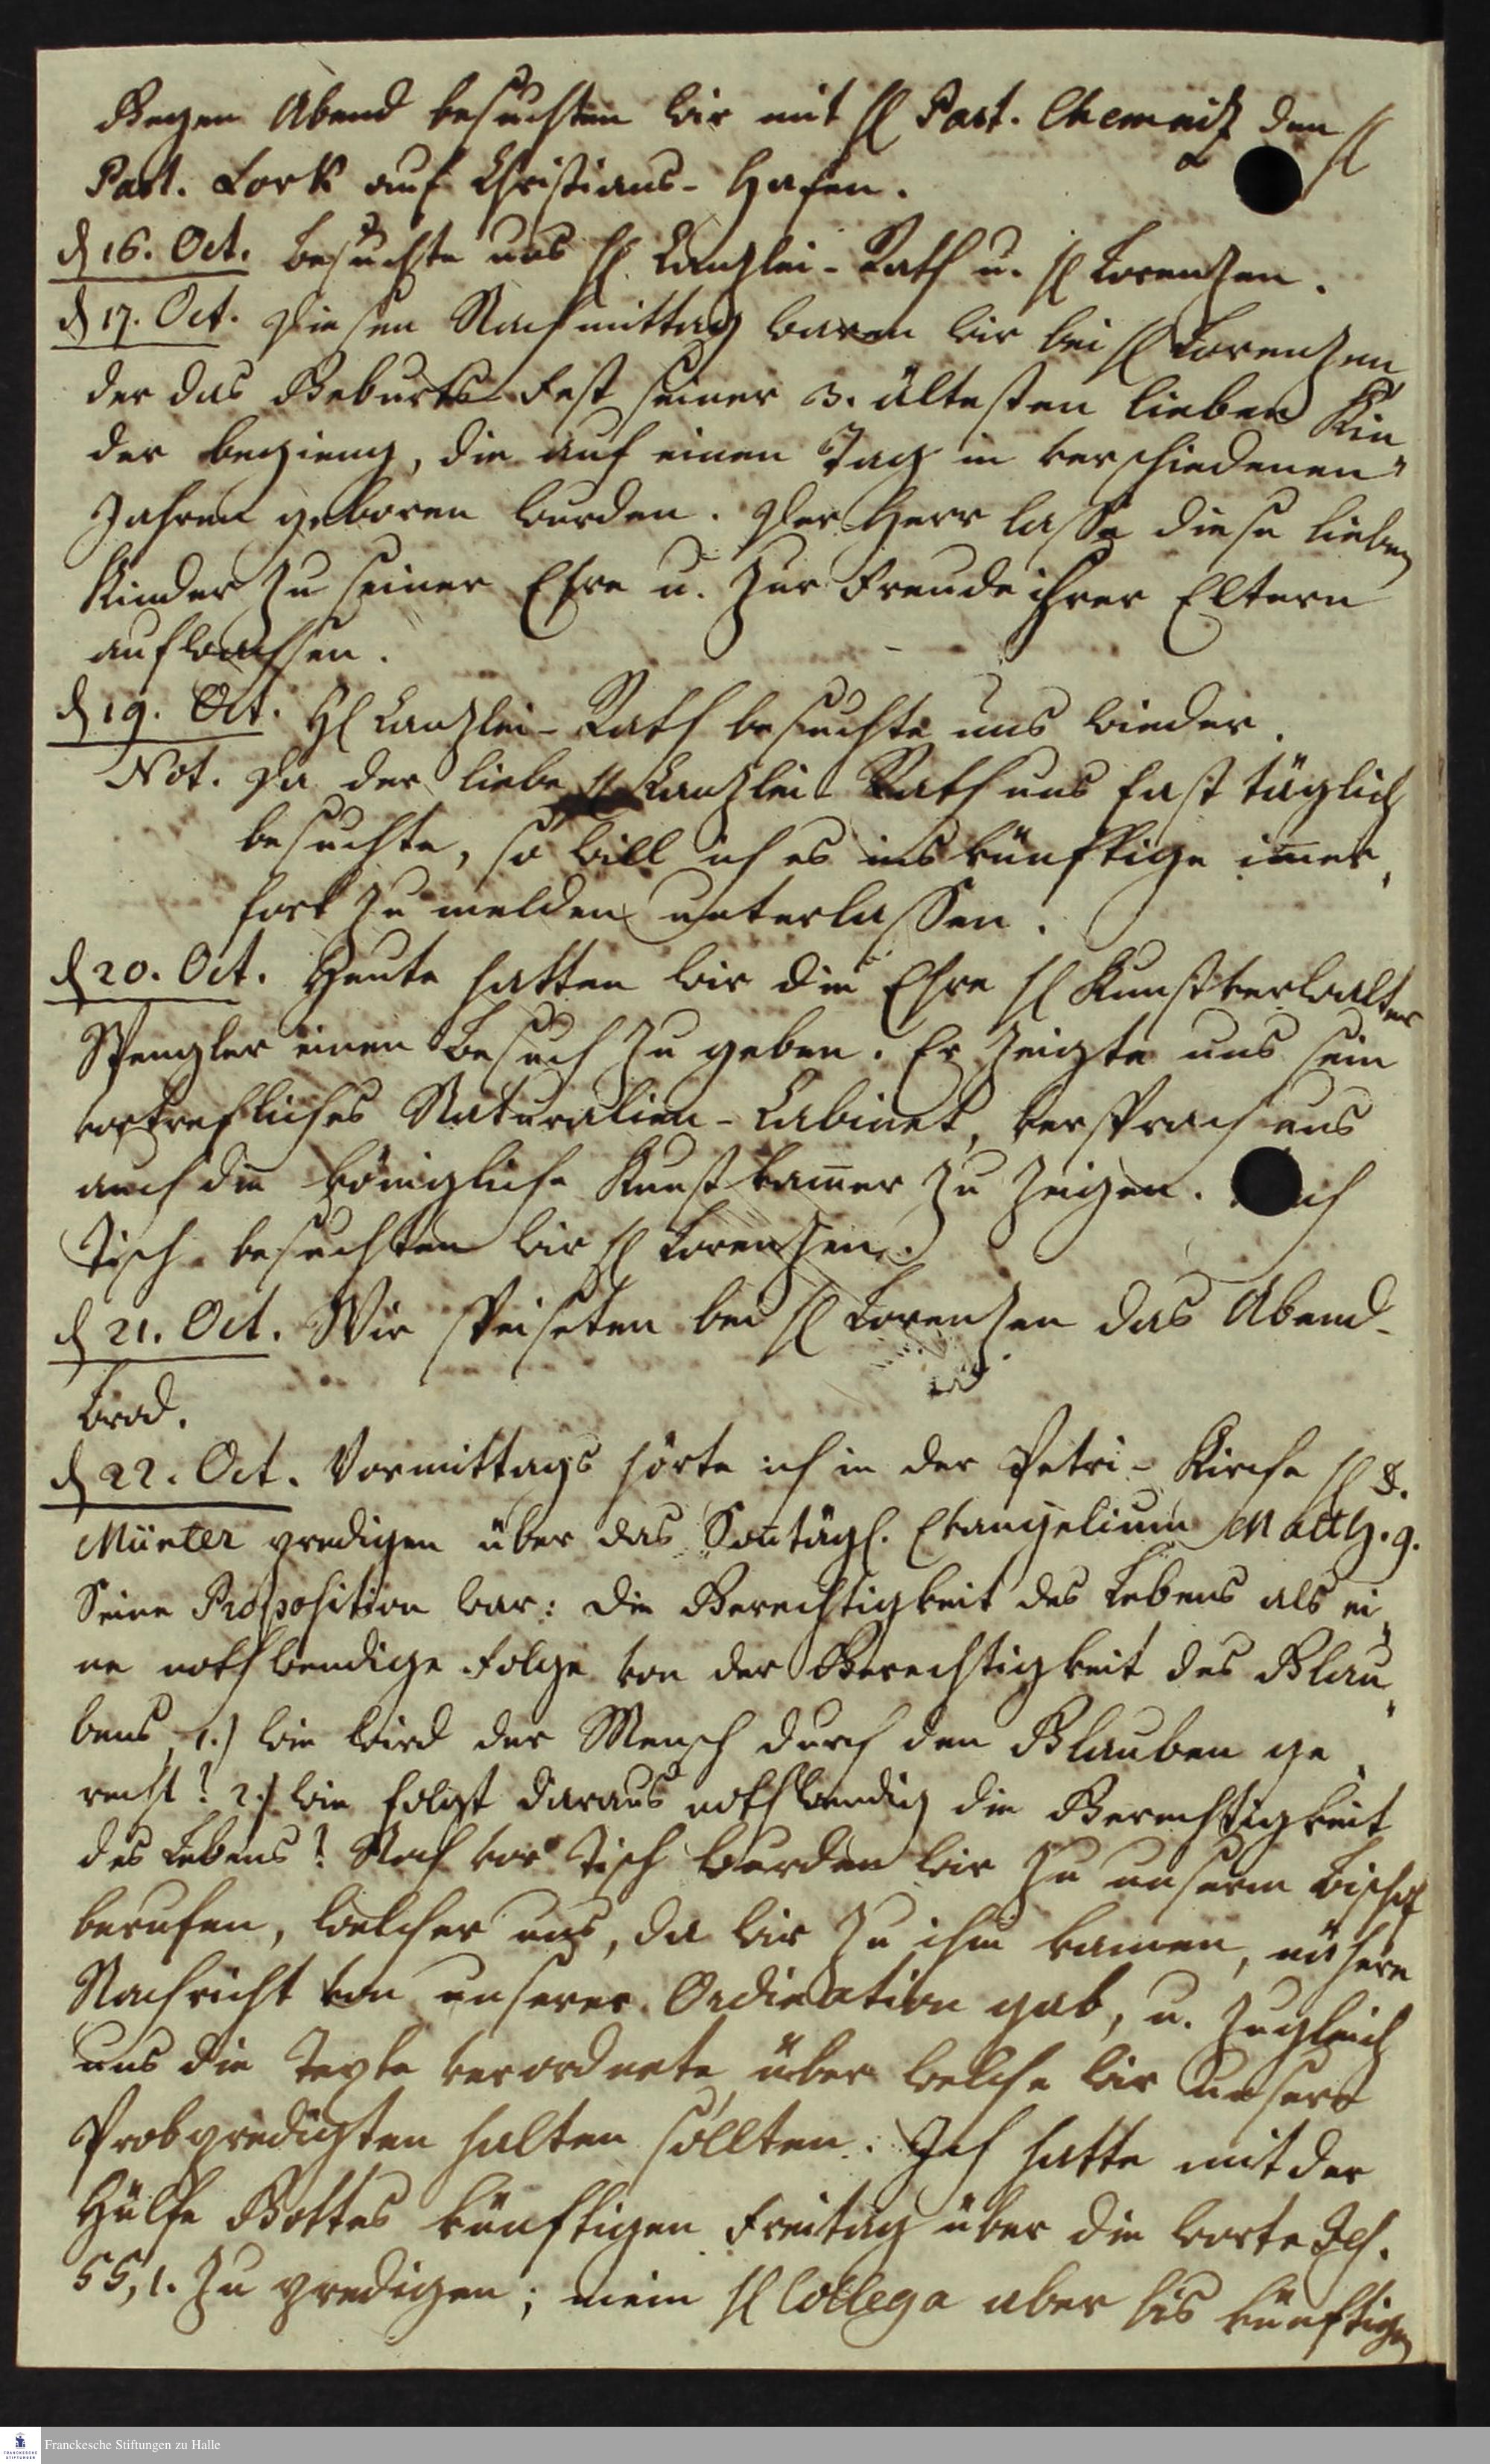 Gegen Abend besuchten wir mit H Past. Chemnitz den H
Past. Lork auf Christians-Hafen.
d 16. Oct. besuchte uns H Canzlei-Rath u. H Lorenzen.
d 17. Oct. Diesen Nachmittag waren wir bei H Lorenzen
der das Geburts-Fest seiner 3. ältesten lieben Kin
der begieng, die auf einen Tag in verschiedenen
Jahren geboren wurden. Der Herr lasse diese lieben
Kinder zu seiner Ehre u. zur Freude ihrer Eltern
aufwachsen.
d 19. Oct. H Canzlei-Rath besuchte uns wieder.
Not. Da der liebe H Canzlei-Rath uns fast täglich
besuchte, so will ich es ins künftige imer
fort zu melden unterlassen.
d 20. Oct. Heute hatten wir die Ehre H Kunstverwalter
Spengler einen Besuch zu geben. Er zeigte uns sein
vortrefliches Naturalien-Cabinet, versprach uns
auch die königliche Kunstkamer zu zeigen. Nach
Tisch besuchten wir H Lorenzen.
d 21. Oct. Wir speiseten bei H Lorenzen das Abend-
brod.
d 22. Oct. Vormittags hörte ich in der Petri-Kirche H D.
Münter predigen über das Sontägl. Evangelium Matth. 9.
Seine Proposition war: die Gerechtigkeit des Lebens als ei
ne nothwendige Folge von der Gerechtigkeit des Glau
bens, 1.) wie wird der Mensch durch den Glauben ge
recht? 2.) wie folgt daraus nothwendig die Gerechtigkeit
des Lebens? Noch vor Tisch wurden wir zu unserm Bischof
berufen, welcher uns, da wir zu ihm kamen, nähere
Nachricht von unserer Ordination gab, u. zugleich
uns die Texte verordnete über welche wir unsere
Probpredigten halten sollten. Ich hatte mit der
Hülfe Gottes künftigen Freitag über die Worte Jes.
55, 1. zu predigen; mein H Collega aber bis künftigen
Franckesche Stiftungen zu Halle